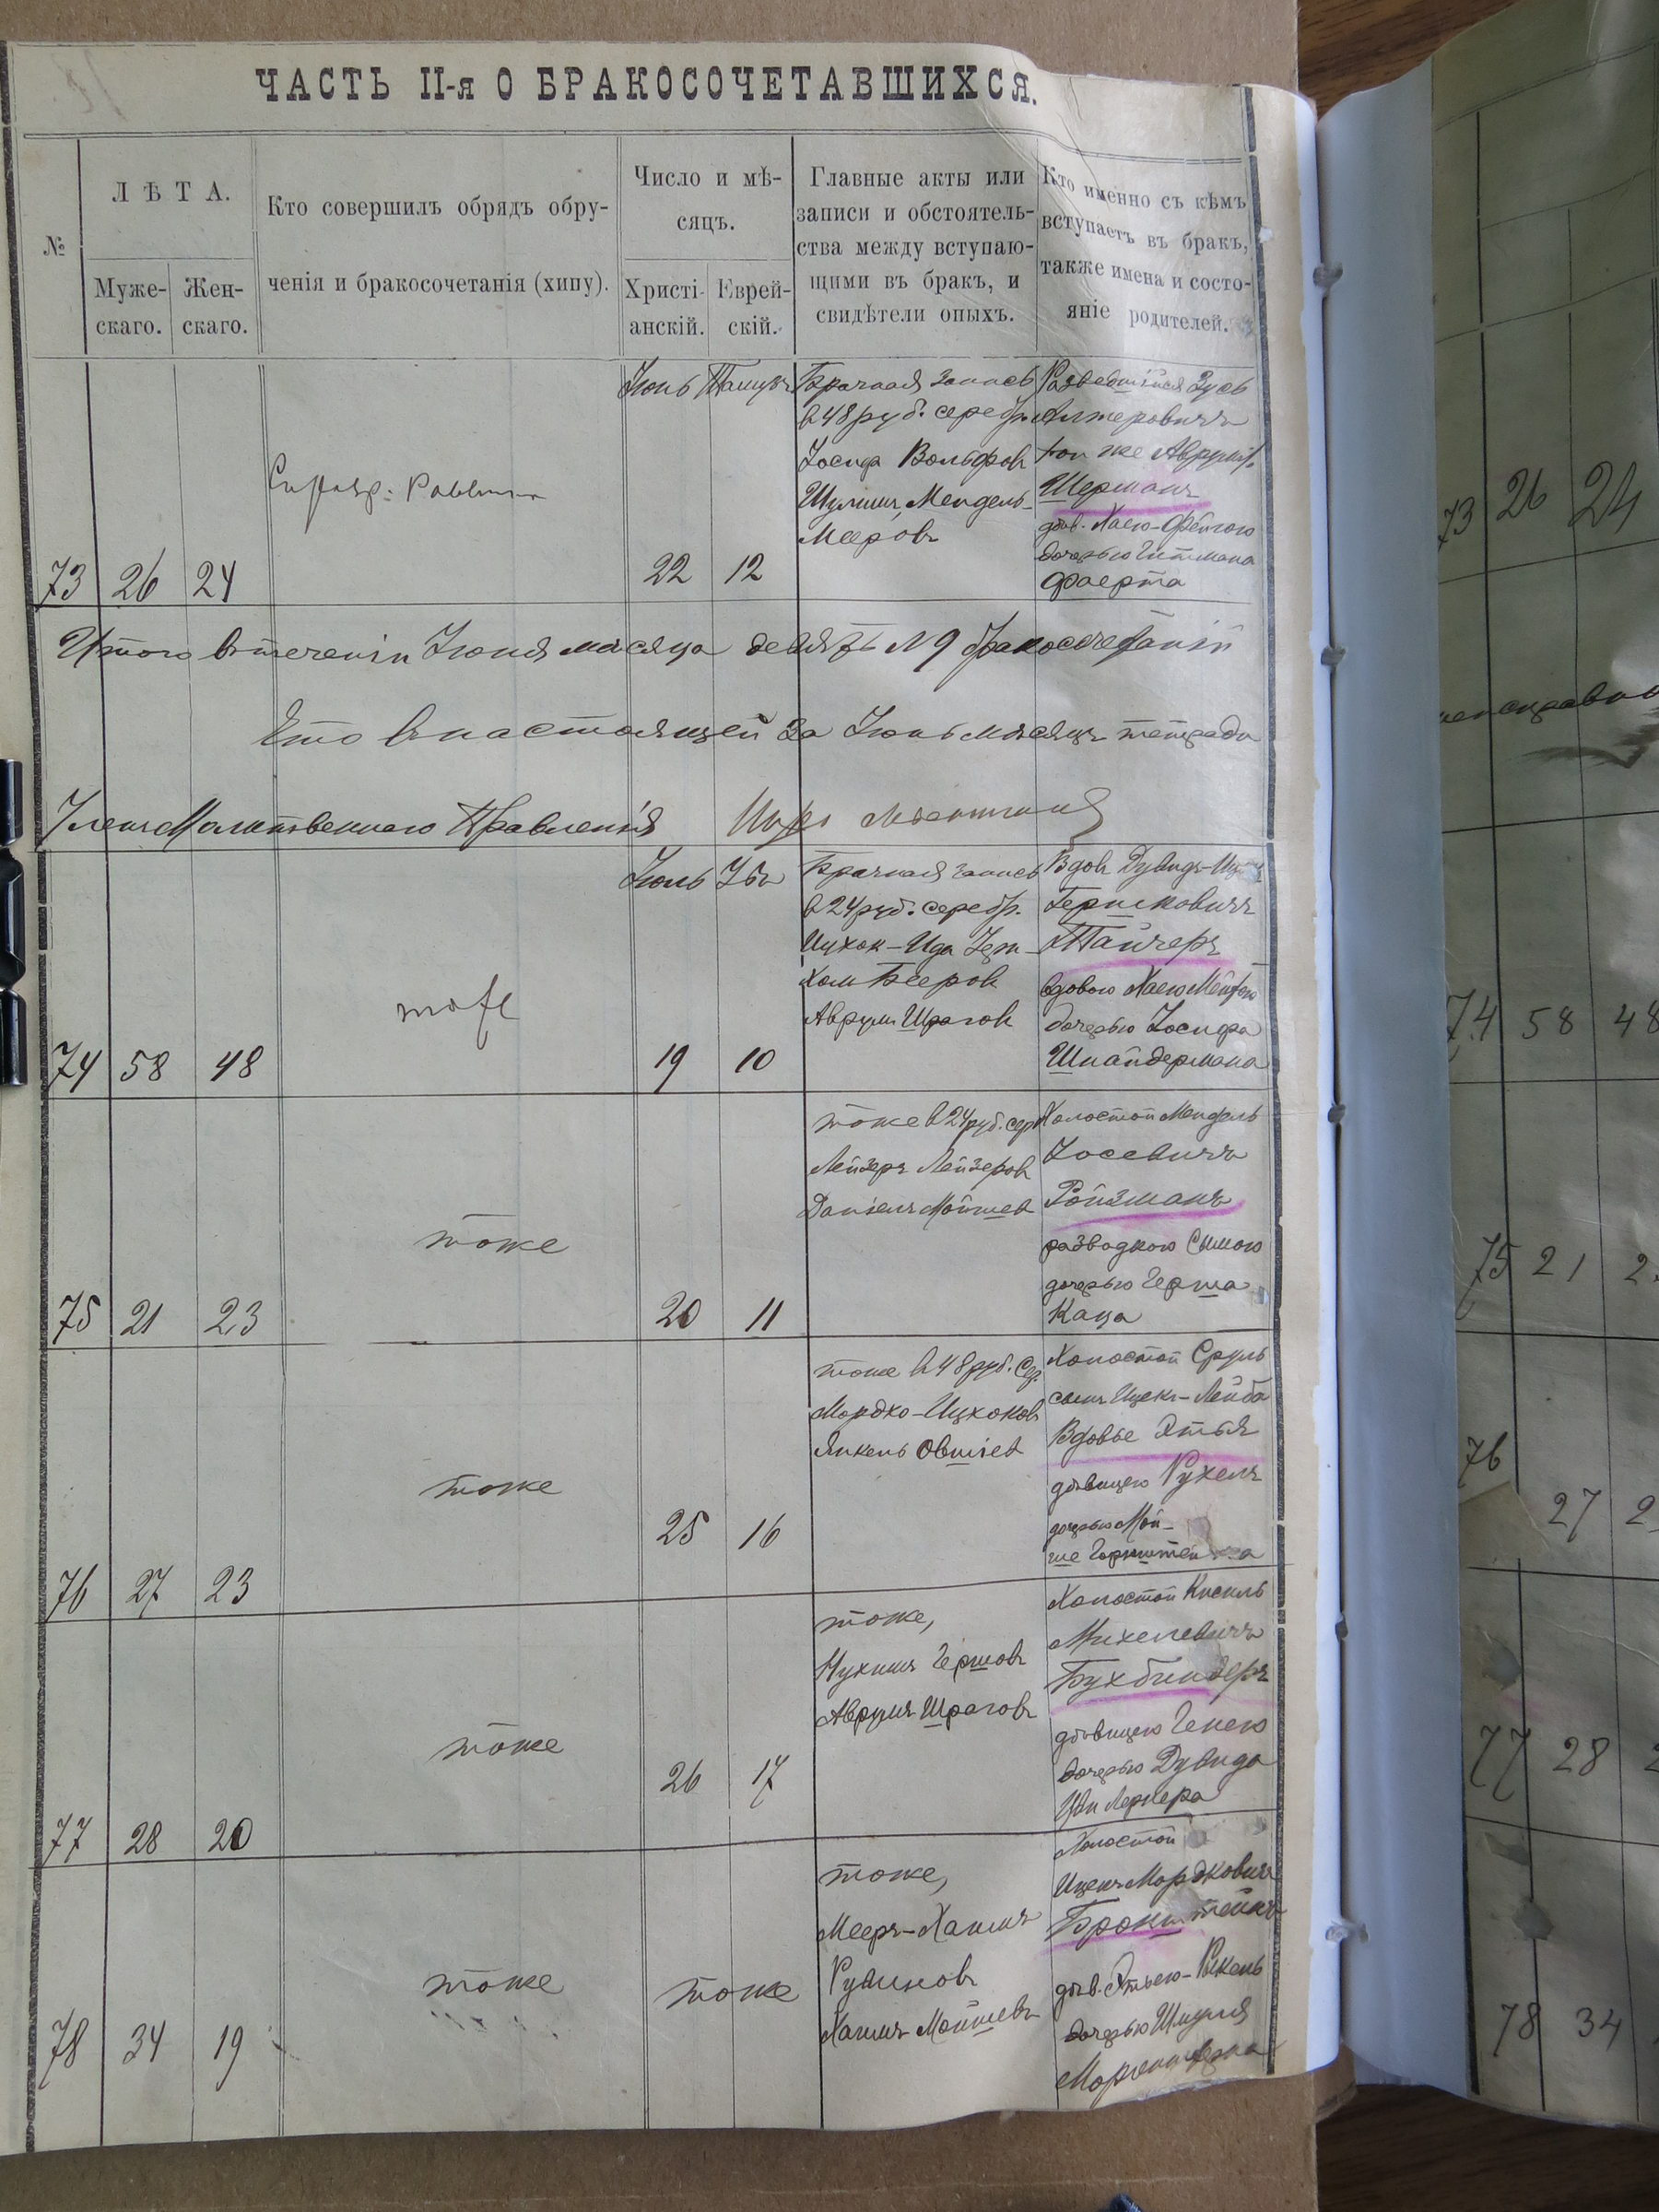 ЧАСТЬ II-я О БРАКОСОЧЕТАВШИХСЯ.
№
ЛѢТА.
Муже-
скаго.
Жен-
скаго.
Кто совершилъ обрядъ обру-
ченія и бракосочетанія (хипу).
Число и мѣ-
сяцъ.
Христі-
анскій.
Еврей-
скій.
Главные акты или
записи и обстоятель-
ства между вступаю-
щими въ бракъ, и
свидѣтели оныхъ.
Кто именно съ кѣмъ
вступаетъ въ бракъ,
также имена и состо-
яніе родителей.
73
26
24
Раввина
Іюнь
22
12
Брачная запись
в 48 руб. серебр.
Іосифа Вольфовъ
Мендель
Мееровъ
Разведшійся Зусь
Алтеровичъ
Шерманъ
дѣв. Хаею-Фейгою
дочерью Гитмана
Итого втеченіи Іюня мѣсяца девять N 9 бракосочетаній
Что в настоящей за Іюнь мѣсяцъ тетради
Членъ Молитвеннаго Правленія
74
58
48
тоже
Іюль
19
10
Брачная запись
в 24 руб. серебр.
Бееровъ
Аврумъ Шраговъ
Вдов. Дувидъ
Гершковичъ
Тайчеръ
вдовою Хаею
дочерью Іосифа
Шнайдермана
75
21
23
тоже
20
11
тоже в 24 руб. сер.
Лейзеръ Лейзеров
Даніелъ Мошков
Холостой Мендель
Іосевичъ
Ройзманъ
разводкою Сымою
дочерью Герша
Каца
76
27
23
тоже
25
16
тоже в 48 руб. сер.
Мордко-Ицхоковъ
Янкель Овшіев
Холостой Сруль
сынъ Ицекъ-Лейба
дѣвицею Рухель
дочерью Мой-
ше
77
28
20
тоже
26
17
тоже,
Нухимъ Гершовъ
Аврумъ Шраговъ
Холостой Кисиль
Михелевичъ
Бухбиндеръ
дѣвицею Генею
дочерью Дувида
Лернера
78
34
19
тоже
тоже
тоже,
Мееръ-Хаимъ
Рувиновъ
Хаимъ Мойшевъ
Холостой
Ицекъ Мордковичъ
Бронштейнъ
дѣв. Этьею-Рыкель
дочерью Шмуля
73
26
24
74
58
48
75
21
76
27
77
28
78
34